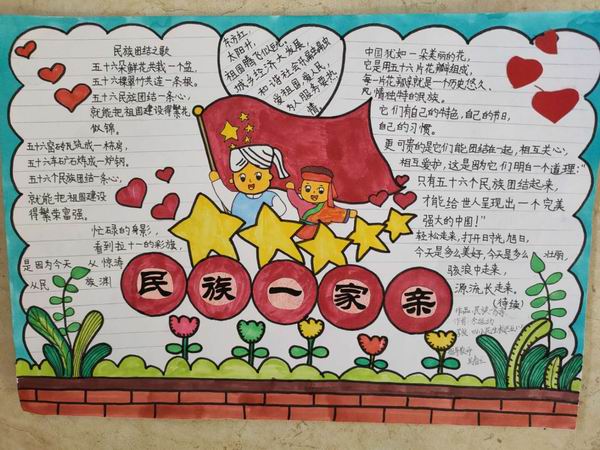 民族团结之歌
五十六朵鲜花共栽一个盆,
五十六棵翠竹共连一条根。
五十六民族团结一条心,
就能把祖国建设得繁花
似锦。
五十六窑砖瓦筑成一栋房,
五十六车矿石炼成一炉钢。
五十六个民族团结一条心,
就能把祖国建设
得繁荣富强。
忙碌的身影,
看到拉十一的彩旗,
是因为今天 从惊涛
从民族
东方红,
太阳升,
祖国腾飞
城乡经济大发展,
和谐社会
爱祖国,爱人民,
为人服务
情
中国犹如一朵美丽的花,
它是用五十六片花瓣组成,
每一片花瓣就是一个历史悠久、
风情独特的民族。
它们有自己的特色,自己的节日,
自己的习惯。
更可贵的是它们能团结在一起,相互关心,
相互爱护,这是因为它们明白一个道理:“
只有五十六个民族团结起来,
才能给世人呈现出一个完美
强大的中国!”
轻松走来,打开日光,旭日,
今天是多么美好,今天是多么 壮丽,
骇浪中走来,
源流长走来。
(待续)
民族一家亲